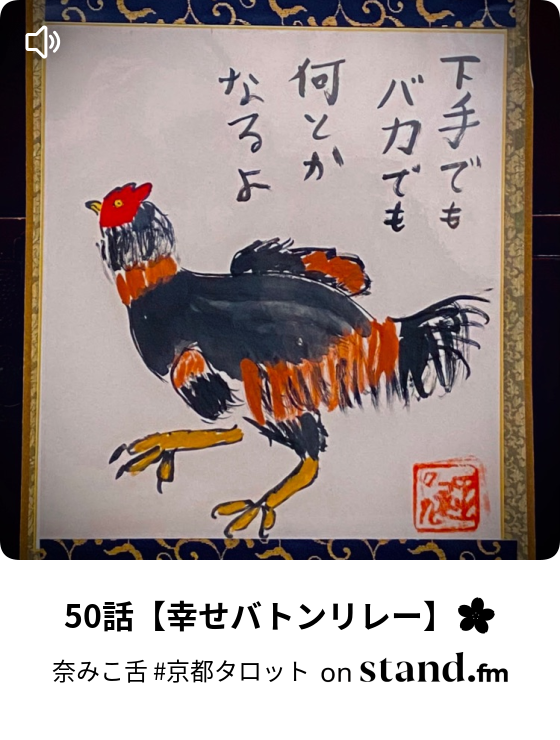 下手でも
バカでも
何とか
なるよ
50話【幸せバトンリレー】
奈みこ舌 #京都タロット on stand.fm